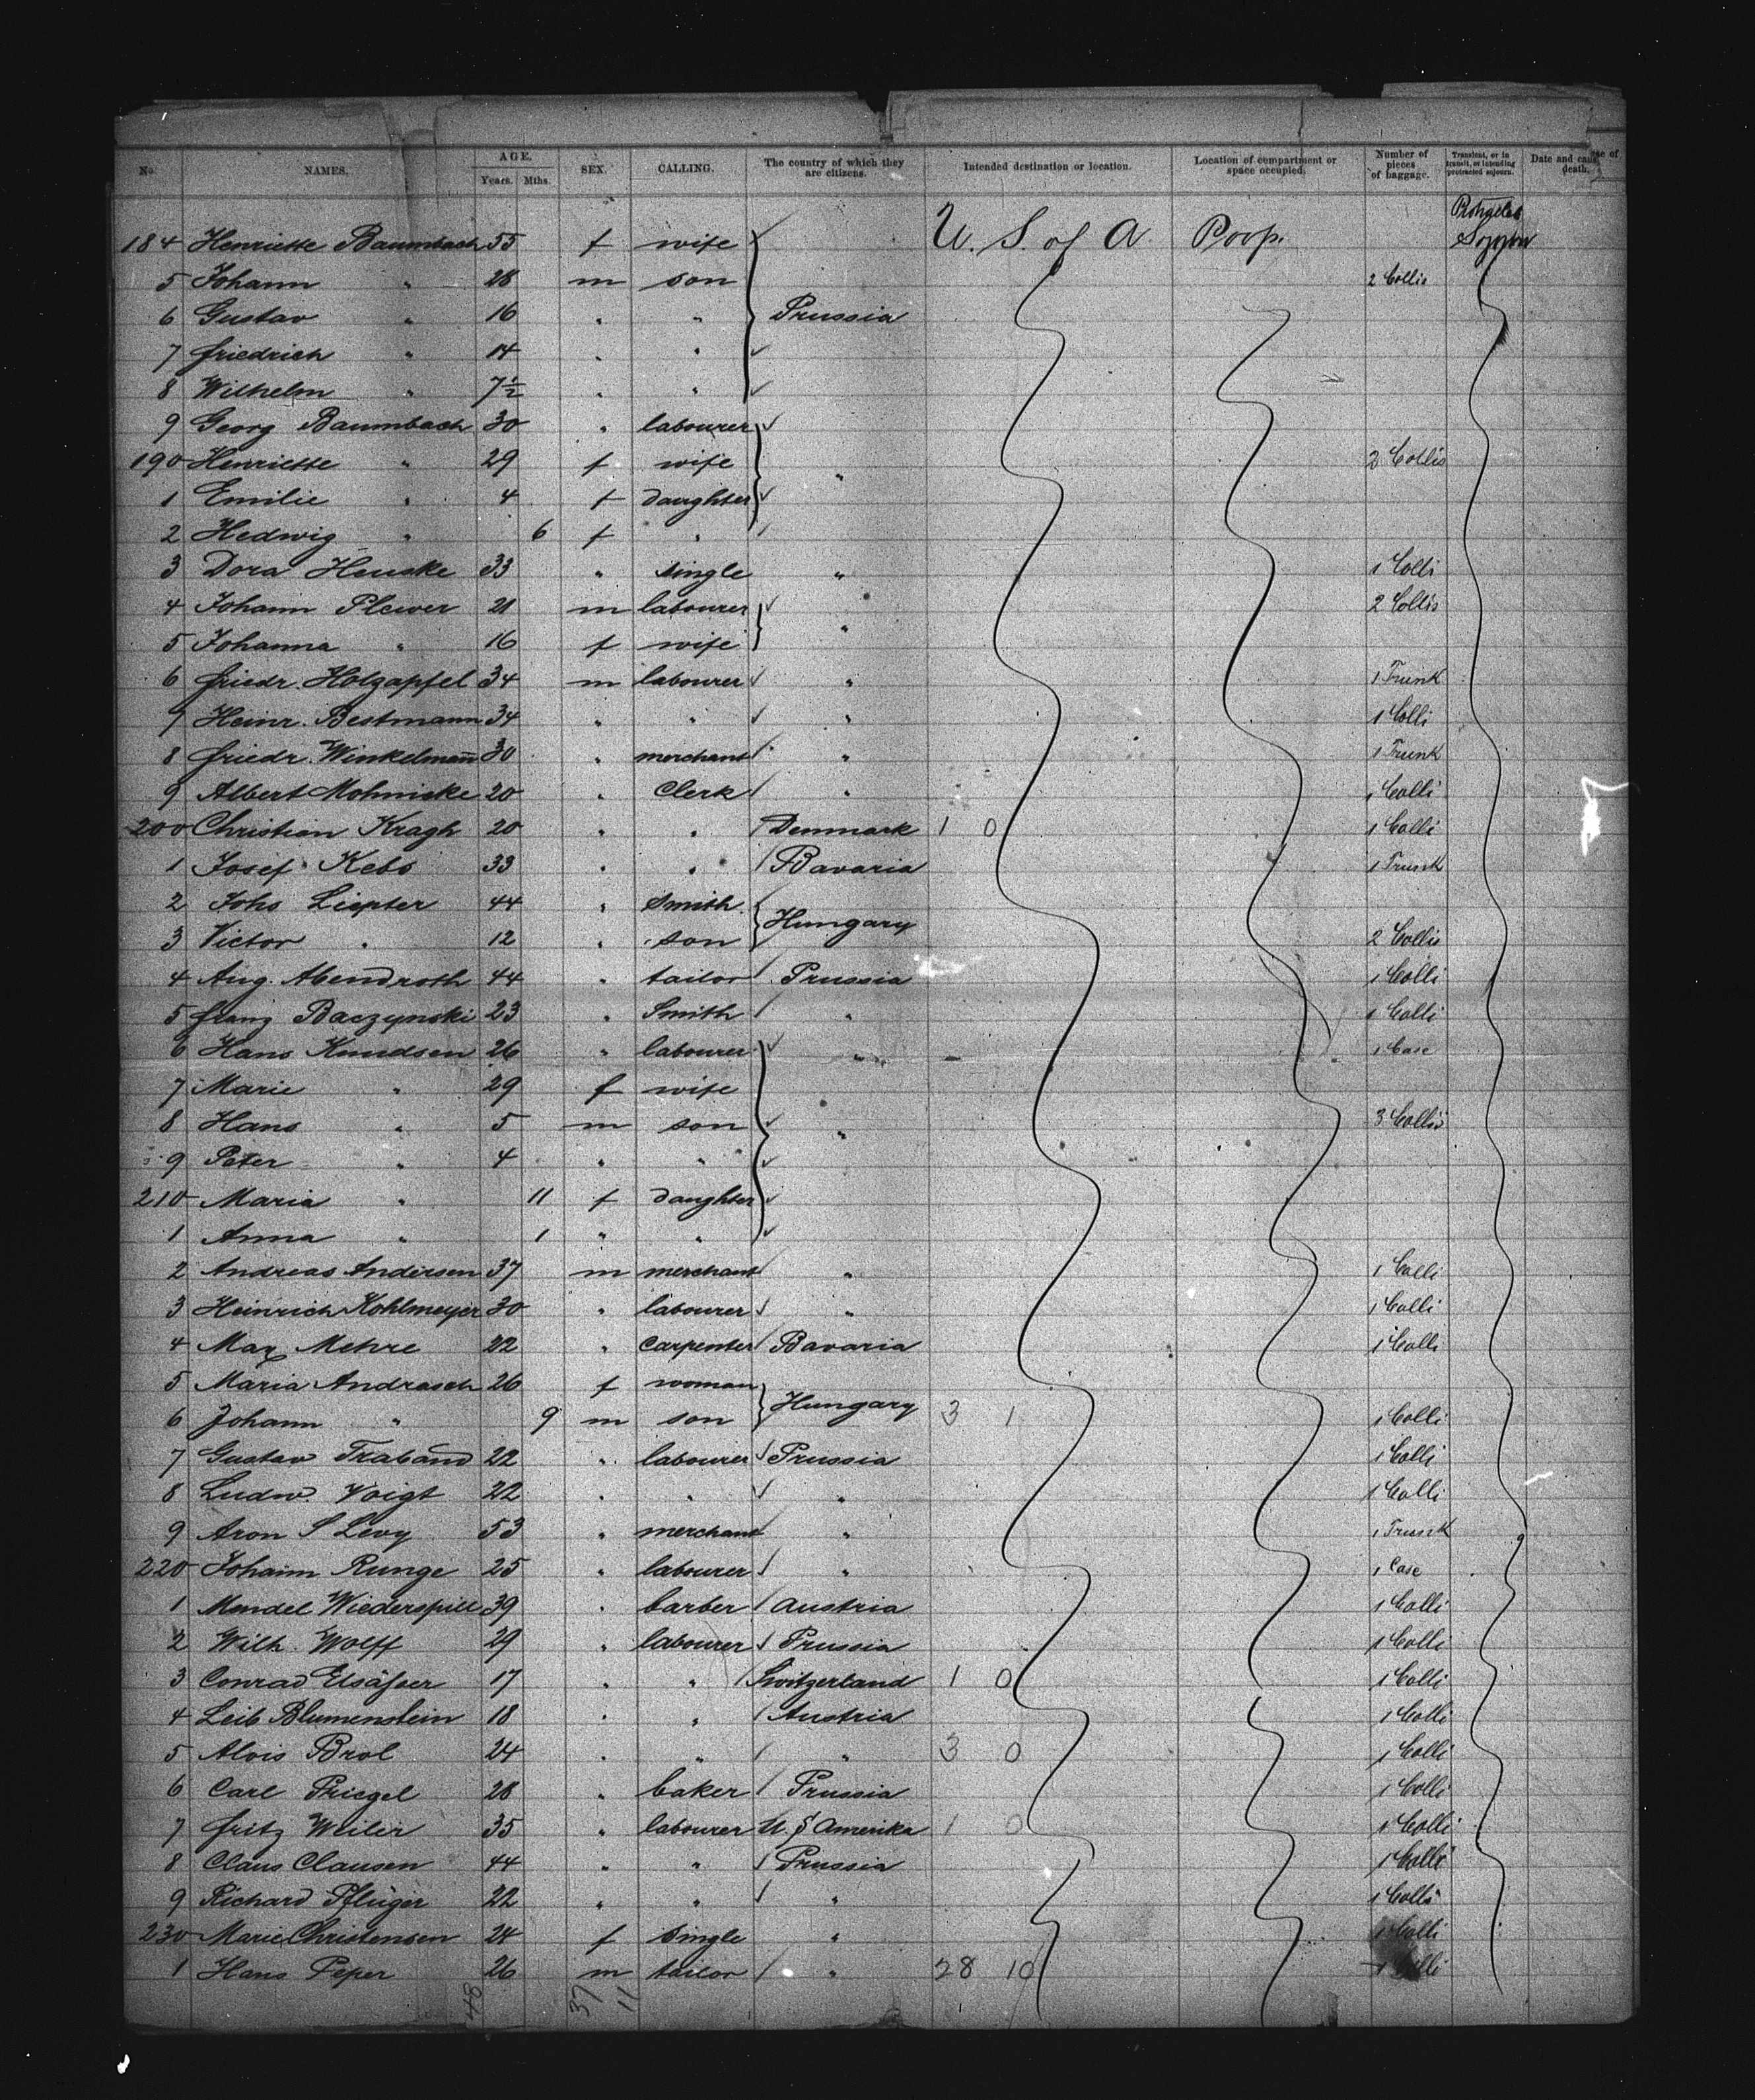 No. NAMES. AGE. Years. Mths. SEX. CALLING. The country of which they are citizens. Intended destination or location. Location of compartment or space occupied. Number of pieces of baggage. Transient, or in transit, or intending protracted sojourn. Date and cause of death.
184 Henriette Baumbach 55 f wife U. S. of A. Poop.
5 Johann " 28 m son 2 Collis
6 Gustav " 16 " " Prussia
7 Friedrich " 14 " "
8 Wilhelm " 7½ " "
9 Georg Baumbach 30 " labourer
190 Henriette " 29 f wife " 2 Collis
1 Emilie " 4 f daughter
2 Hedwig " 6 f "
3 Dora Henske 33 " single " 1 Colli
4 Johann Plewer 21 m labourer 2 Collis
5 Johanna " 16 f wife "
6 Friedr. Holzapfel 34 m labourer " 1 Trunk
7 Heinr. Bestmann 34 " " " 1 Colli
8 Friedr. Winkelmann 30 " merchant " 1 Trunk
9 Albert Mohniske 20 " Clerk " 1 Colli
200 Christian Kragh 20 " " Denmark 1 0 1 Colli
1 Josef Kebs 33 " " Bavaria 1 Trunk
2 Johs Liepter 44 " Smith Hungary
3 Victor " 12 " son 2 Collis
4 Aug. Abendroth 44 " tailor Prussia 1 Colli
5 Franz Baczynski 23 " Smith " 1 Colli
6 Hans Knudsen 26 " labourer " 1 Case
7 Marie " 29 f wife
8 Hans " 5 m son " 3 Collis
9 Peter " 4 " "
210 Maria " 11 f daughter
1 Anna " 1 " "
2 Andreas Andersen 37 m merchant " 1 Colli
3 Heinrich Kohlmeyer 30 " labourer " 1 Colli
4 Max Mehre 22 " Carpenter Bavaria 1 Colli
5 Maria Andrasch 26 f woman Hungary
6 Johann " 9 m son 3 1 1 Colli
7 Gustav Traband 22 " labourer Prussia 1 Colli
8 Ludw. Voigt 22 " " " 1 Colli
9 Aron S Levy 53 " merchant " 1 Trunk
220 Johann Runge 25 " labourer " 1 Case
1 Mendel Wiederspill 39 " barber Austria 1 Colli
2 Wilh. Wolff 29 " labourer Prussia 1 Colli
3 Conrad Elsäßer 17 " " Switzerland 1 0 1 Colli
4 Leib Blumenstein 18 " " Austria 1 Colli
5 Alois Brol 24 " " " 3 0 1 Colli
6 Carl Priegel 28 " baker Prussia 1 Colli
7 Fritz Weiler 35 " labourer U. S Amerika 1 0 1 Colli
8 Claus Clausen 44 " " Prussia 1 Colli
9 Richard Pflüger 22 " " " 1 Colli
230 Marie Christensen 24 f single " 1 Colli
1 Hans Peper 26 m tailor " 28 10 1 Colli
48 37 11